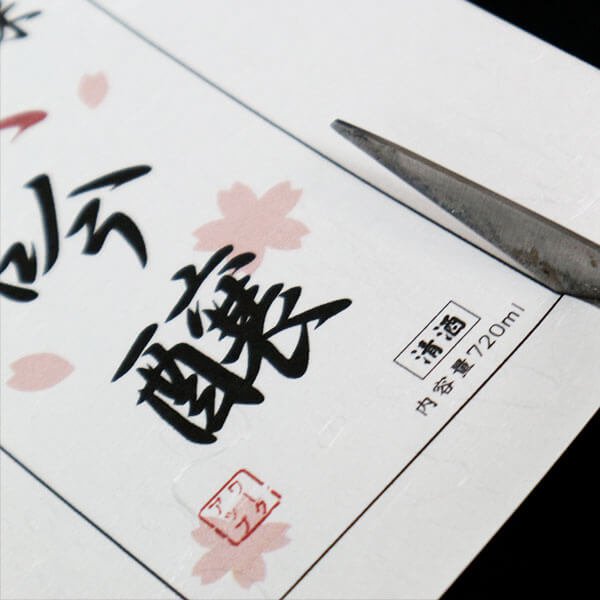 吟醸
清酒
内容量720ml
ワーク
アップ